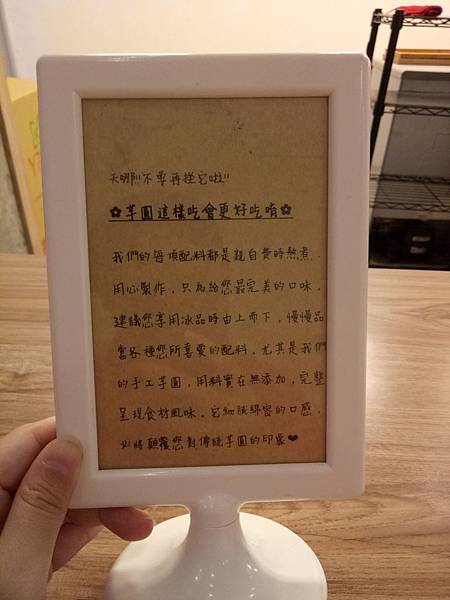 天啊!!不要再搓它啦!!
✿芋圓這樣吃會更好吃唷✿
我們的每項配料都是親自費時熬煮.
用心製作，只為給您最完美的口味，
建議您享用冰品時由上而下，慢慢品
嚐各種您所喜愛的配料，尤其是我們
的手工芋圓，用料實在無添加，完整
呈現食材風味，它細膩綿密的口感，
必將顛覆您對傳統芋圓的印象❤